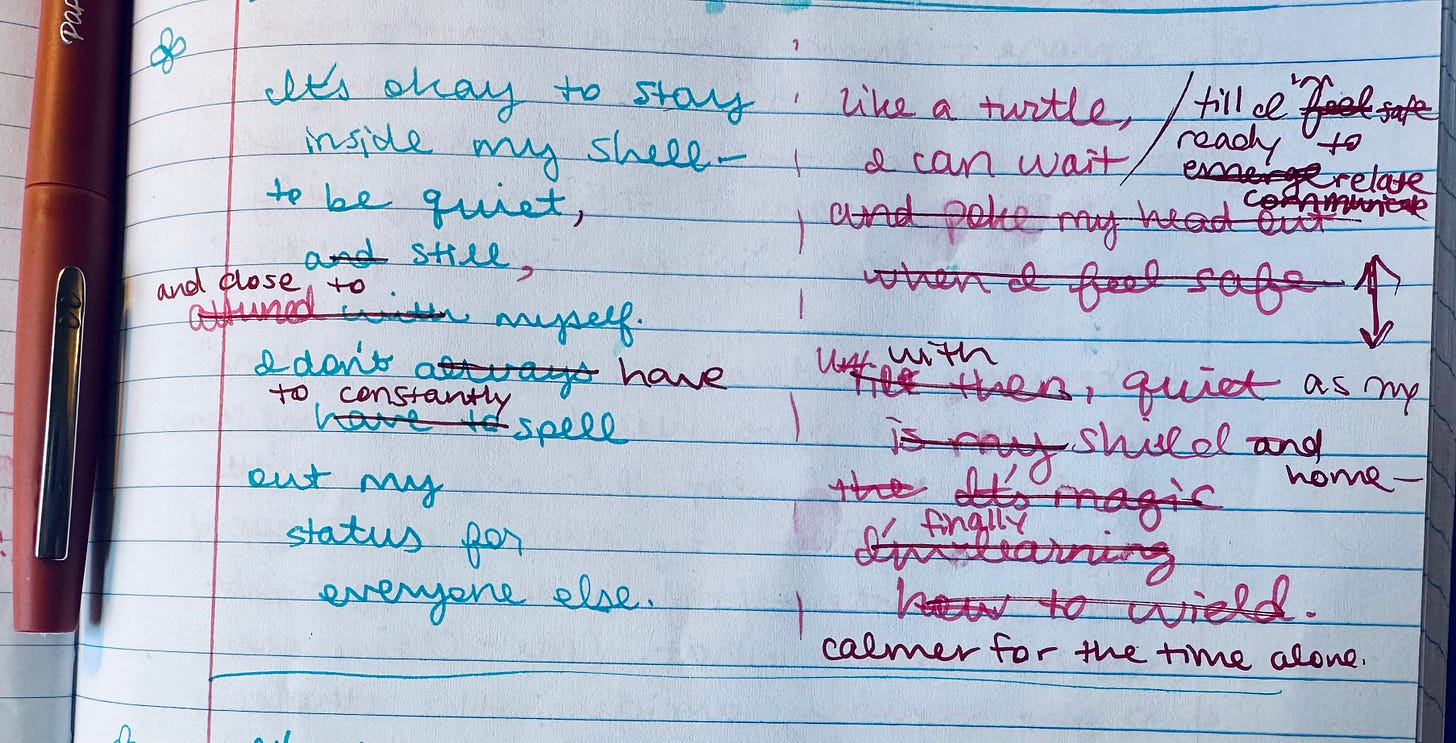 It's okay to stay
inside my shell—
to be quiet,
and still,
and close to
attuned with myself.
I don't always have
to constantly
have to spell
out my
status for
everyone else.
like a turtle, / till I'm feel safe
I can wait / ready to
emerge relate
communicate
and poke my head out
when I feel safe
with
till then, quiet as my
is my shield and
home—
the It's magic
finally
I'm learning
how to wield.
calmer for the time alone.